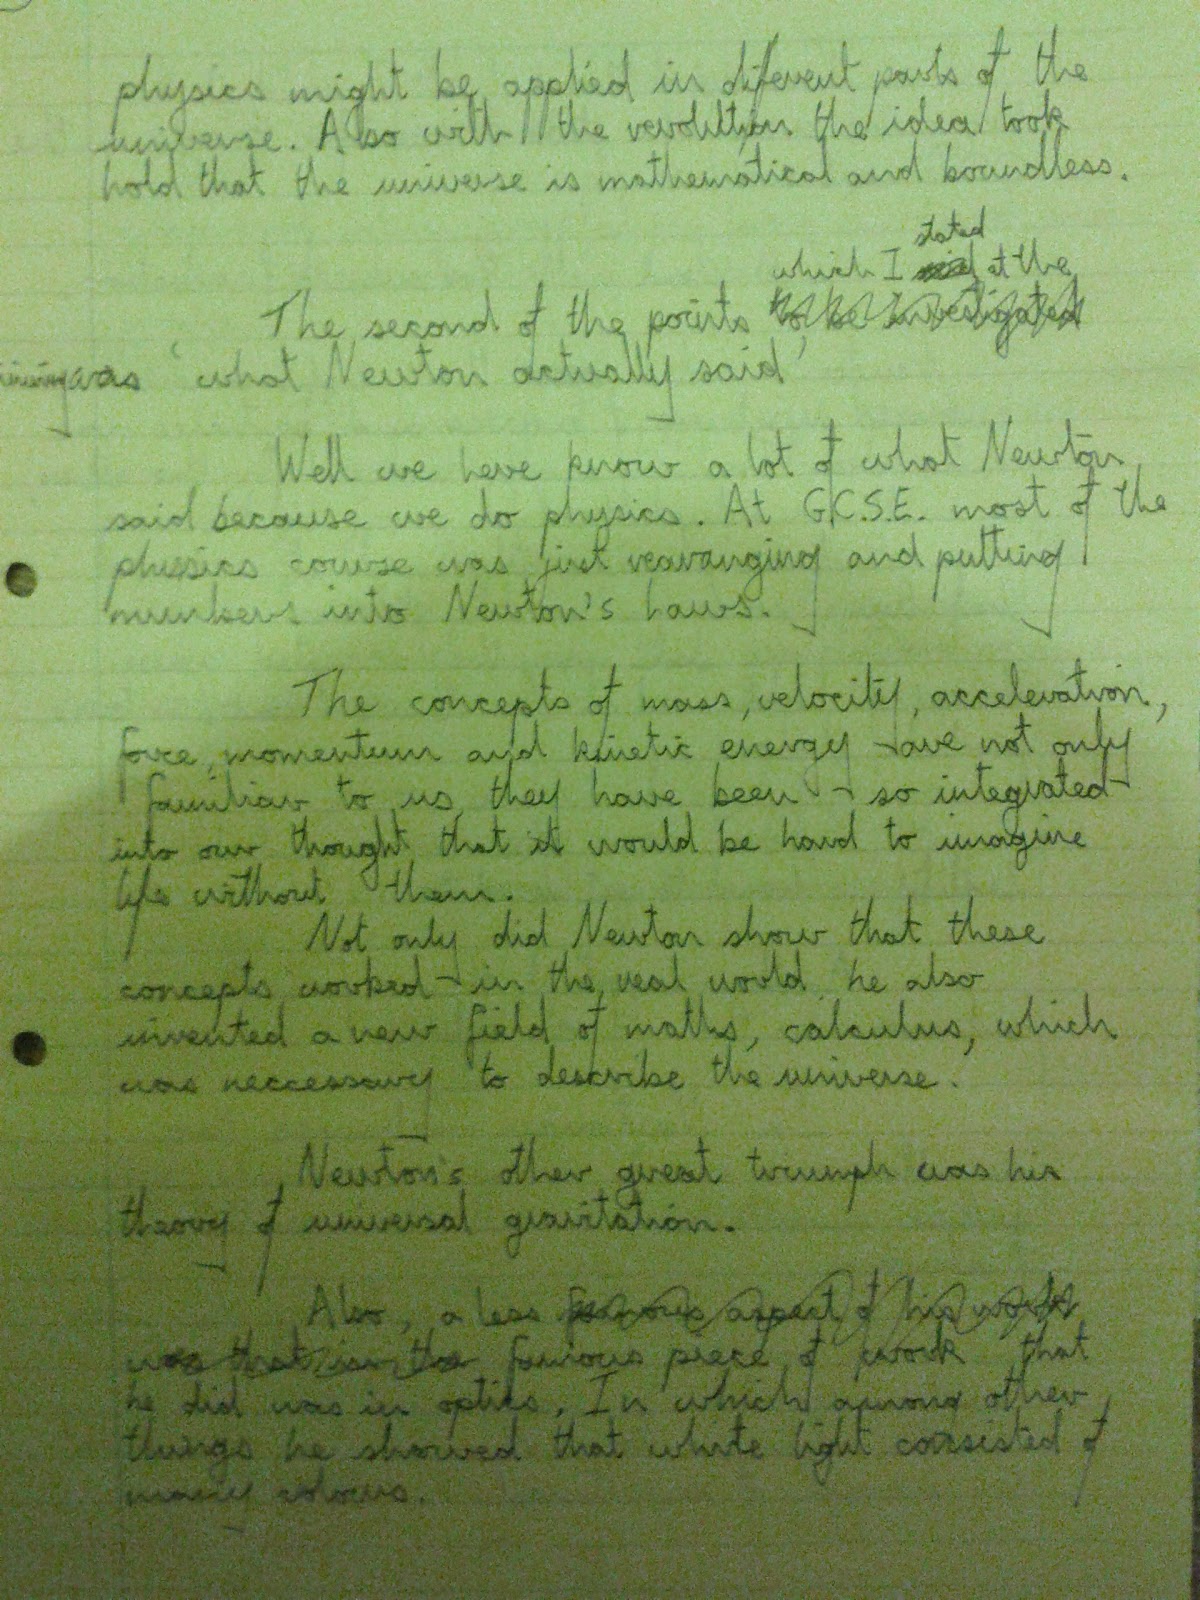 physics might be applied in diferent parts of the
universe. Also with the revolution the idea took
hold that the universe is mathematical and boundless.
stated
which I said at the
The second of the points to be investigated
was 'what Newton actually said'
Well we have know a lot of what Newton
said because we do physics. At G.C.S.E. most of the
physics course was just rearranging and putting
numbers into Newton's laws.
The concepts of mass, velocity, acceleration,
force, momentum and kinetic energy are not only
familiar to us, they have been so integrated
into our thought that it would be hard to imagine
life without them.
Not only did Newton show that these
concepts worked in the real world, he also
invented a new field of maths, calculus, which
was neccessary to describe the universe.
Newton's other great triumph was his
theory of universal gravitation.
Also, a less famous aspect of his work
was that in the famous piece of work that
he did was in optics. In which among other
things he showed that white light consisted of
many colours.